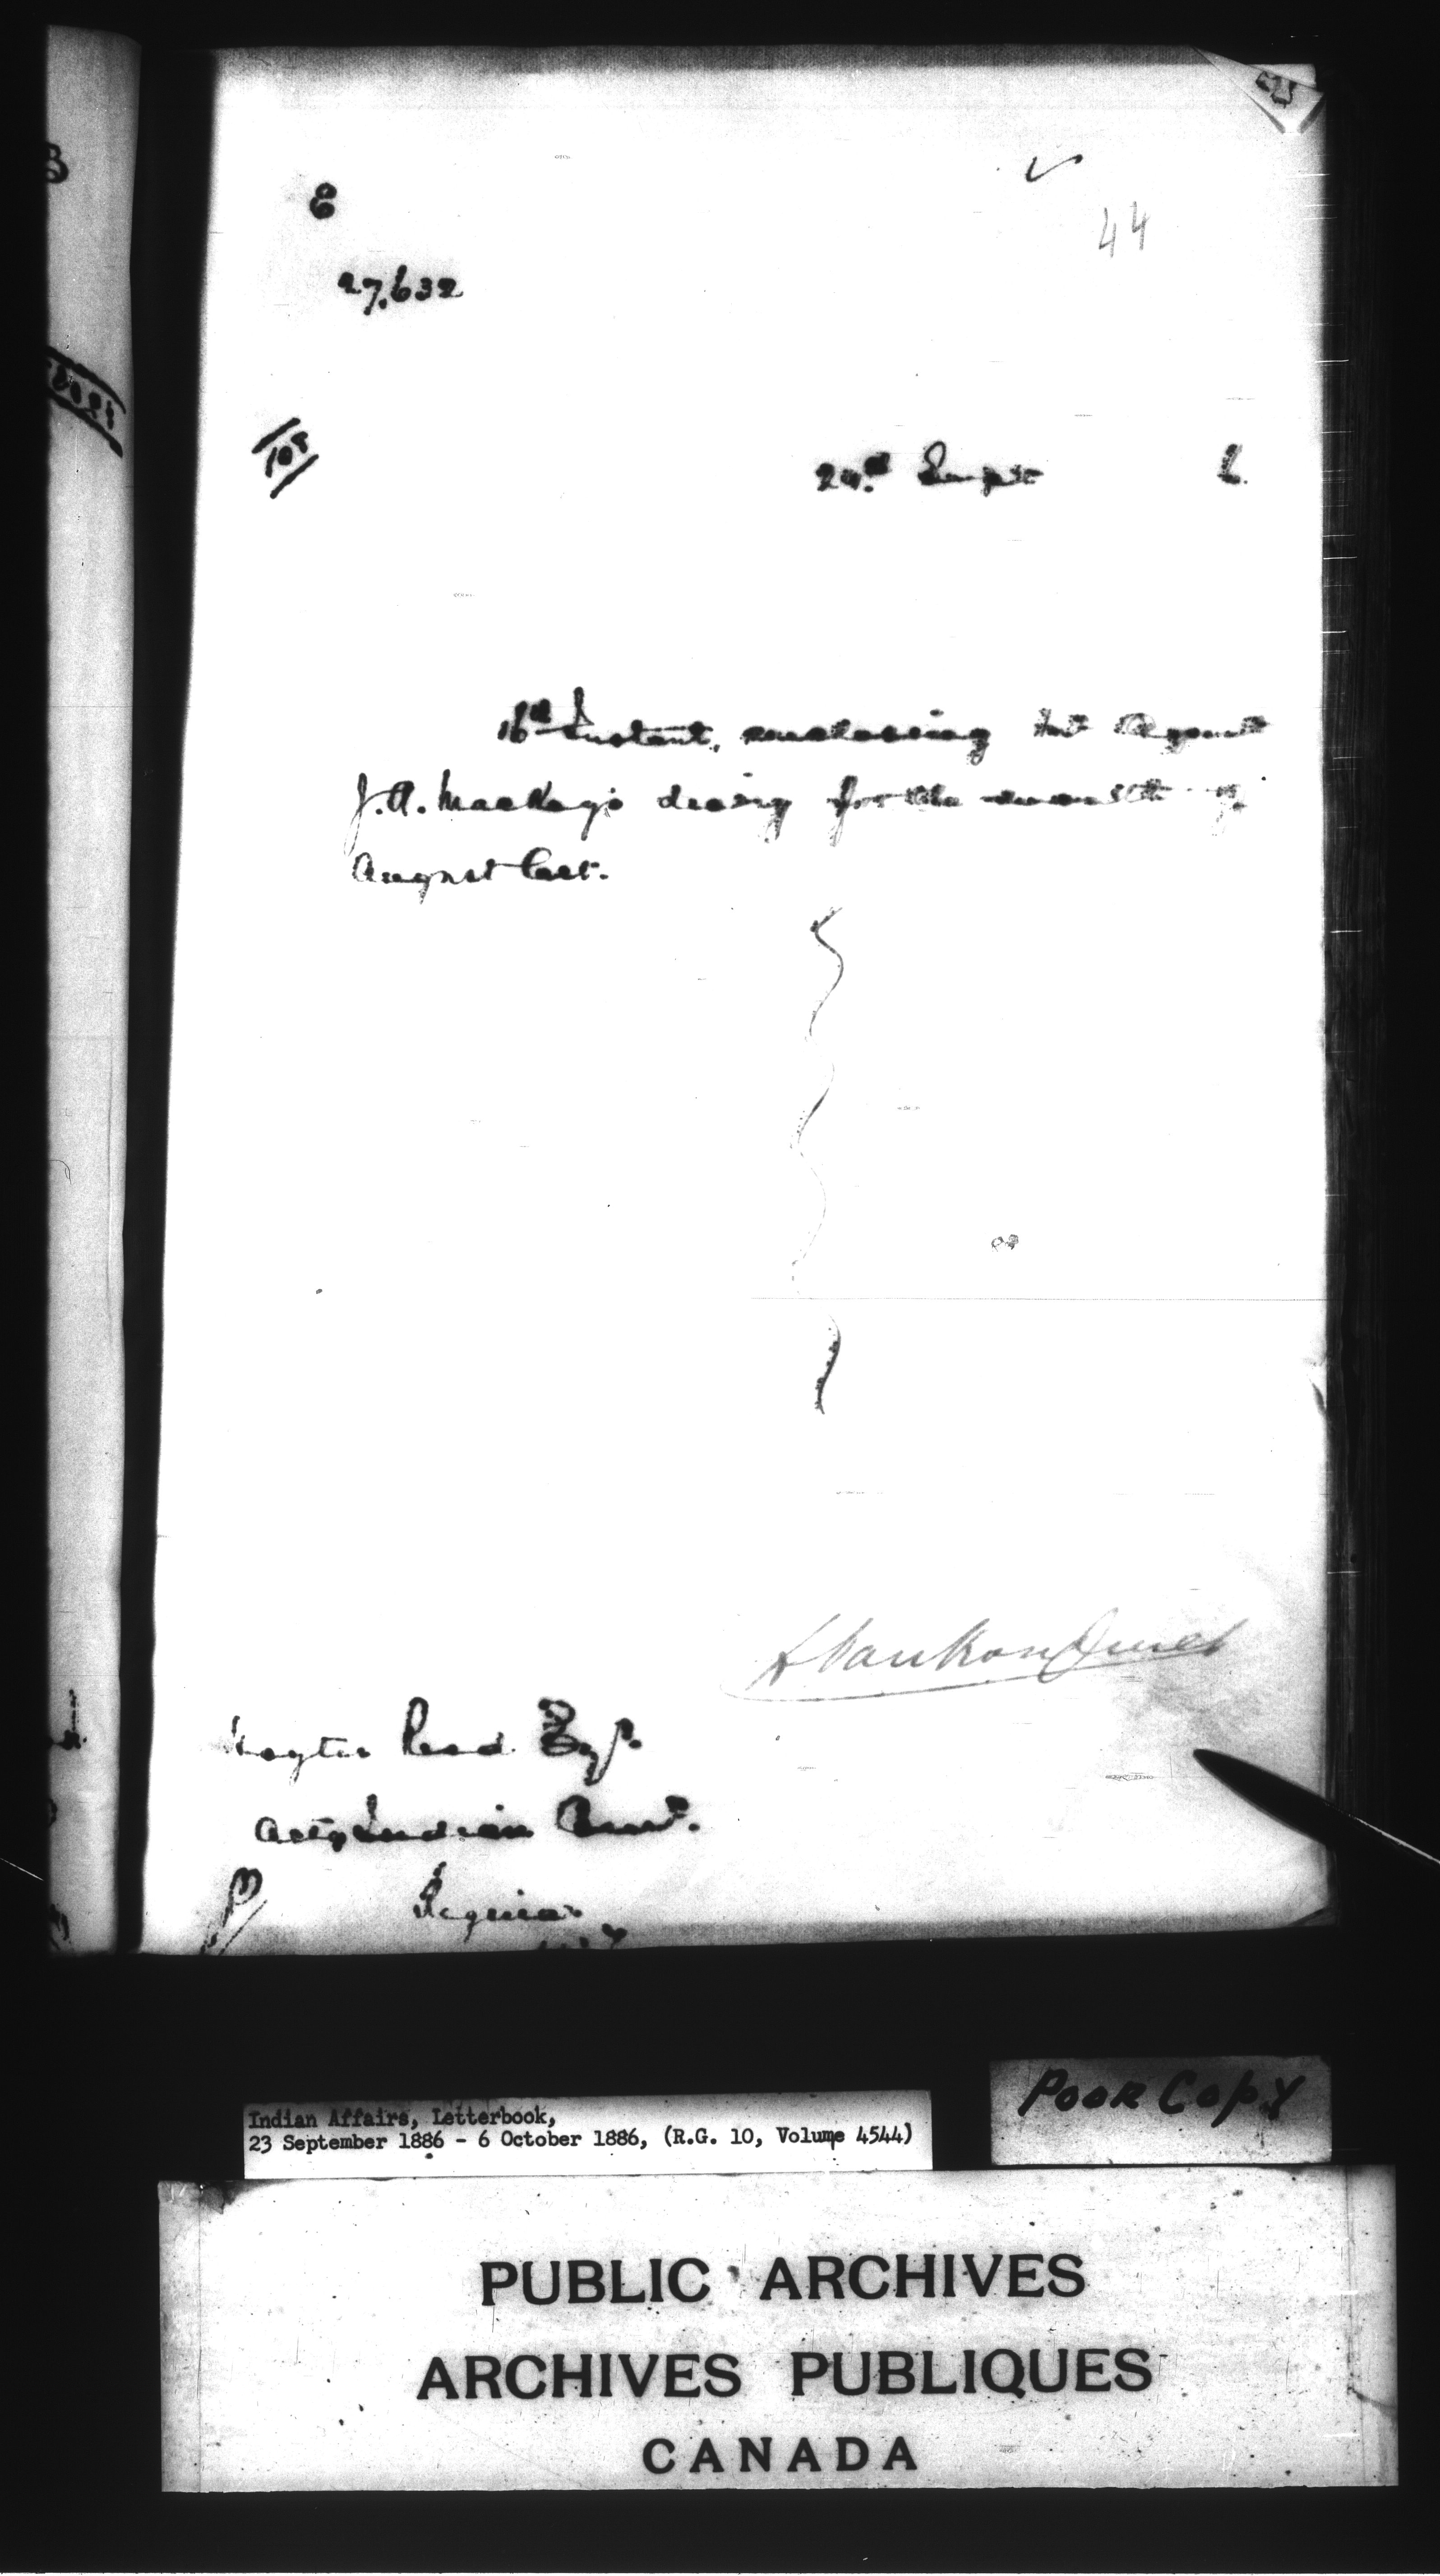 E
44
27,632
108
Sept 6.
16th Instant, enclosing Ind Agent
J.A. MacKay's diary for the month of
August last.
L VanKoughnet
Hayter Reed Esqr.
Actg Indian Comr.
Regina
Poor Copy
Indian Affairs, Letterbook,
23 September 1886 - 6 October 1886, (R.G. 10, Volume 4544)
PUBLIC ARCHIVES
ARCHIVES PUBLIQUES
CANADA